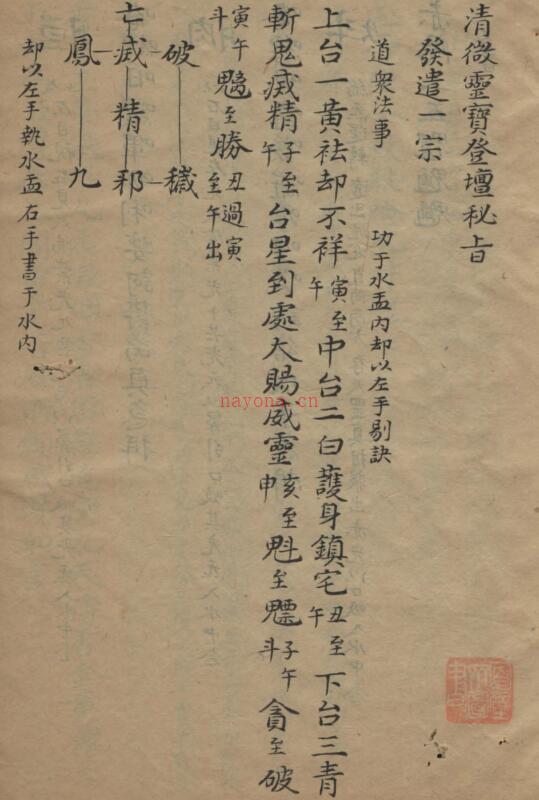 清微靈寶登壇秘旨
發遣一宗
道衆法事 功于水盂内却以左手剔訣
上台一黃祛却不祥 寅至午 中台二白護身鎮宅 丑至午 下台三青
斬鬼滅精 子至午 台星到處大賜威靈 亥至申 魁至 子午斗 貪至破
寅午斗 至勝 丑過寅至午出
破 穢
亡滅精邪
鳳 九
却以左手執水盂右手書于水内
nayona.cn